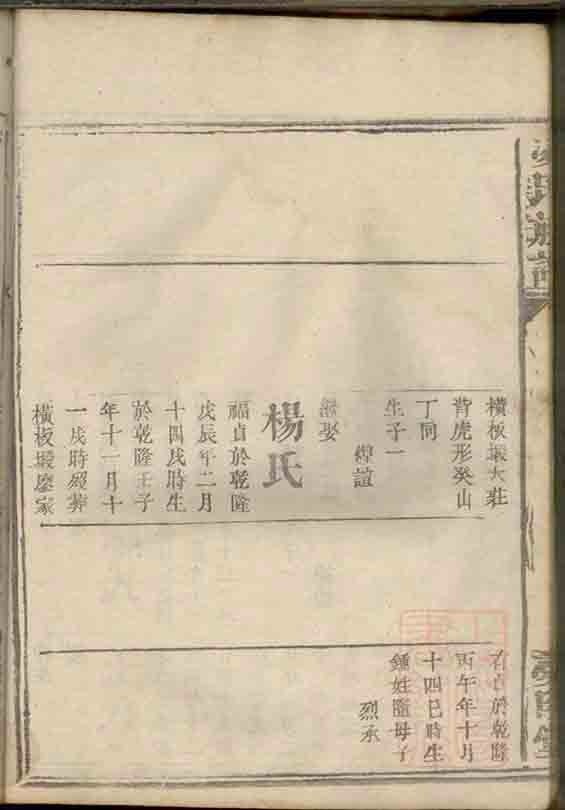 橫板塅大莊
背虎形癸山
丁向
生子一
禋誼
繼娶
楊氏
福貞於乾隆
戊辰年二月
十四戌時生
於乾隆壬子
年十一月十
一戌時歿葬
橫板塅廖家
貞於乾隆
丙午年十月
十四巳時生
鍾姓隨母子
烈承
氏族譜
堂